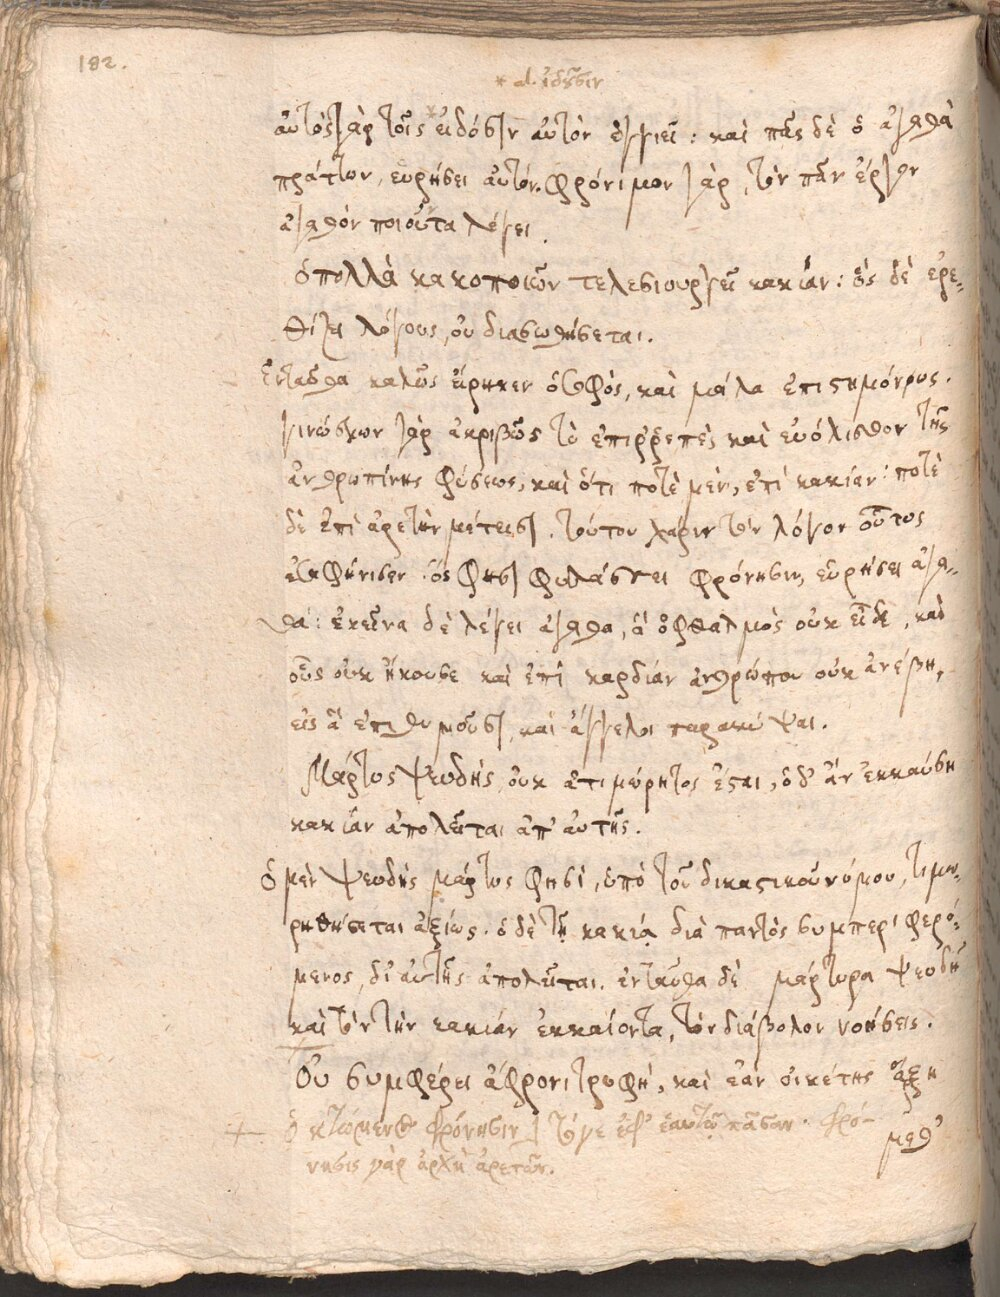 182.
* al. ἰδοῦσιν
αὐτὸς γὰρ τοῖς * εἰδόσιν αὐτὸν ἐγγιεῖ : καὶ πᾶς δὲ ὁ ἀγαθὰ
πράττων, εὑρήσει αὐτόν. φρόνιμον γὰρ, τὸν πᾶν ἔργον
ἀγαθόν ποιοῦντα λέγει.
ὁ πολλὰ κακοποιῶν τελεσιουργεῖ κακίαν : ὃς δὲ ἐρε-
θίζει λόγους, οὐ διασωθήσεται.
Ἐνταῦθα καλῶς εἴρηκεν ὁ σοφὸς, καὶ μάλα ἐπιστημόνως.
γινώσκων γὰρ ἀκριβῶς τὸ ἐπιρρεπὲς καὶ εὐόλισθον τῆς
ἀνθρωπίνης φύσεως, καὶ ὅτι ποτὲ μὲν, ἐπὶ κακίαν : ποτὲ
δὲ ἐπὶ ἀρετὴν μέτεισι. τούτου χάριν τὸν λόγον οὕτως
φησι φυλάσσει φρόνησιν, εὑρήσει ἀγα-
θά : ἐκεῖνα δὲ λέγει ἀγαθα, ἃ ὀφθαλμὸς οὐκ εἶδε, καὶ
οὖς οὐκ ἤκουσε καὶ ἐπὶ καρδίαν ἀνθρώπου οὐκ ἀνέβη,
εἰς ἃ ἐπιθυμοῦσι, καὶ ἄγγελοι παρακύψαι.
Μάρτυς ψευδής, οὐκ ἀτιμώρητος ἔσται, ὁ δ' ἂν ἐκκαύση
κακίαν ἀπολεῖται ἀπ' αὐτῆς.
Ὁ μὲν ψευδὴς μάρτυς φησί, ὑπὸ τοῦ δικαστικοῦ νόμου, τιμω-
ρηθήσεται ἀξίως. ὁ δὲ τῇ κακίᾳ διὰ παντὸς συμπεριφερό-
μενος, δι' αὐτῆς ἀπολεῖται. ἐνταῦθα δὲ μάρτυρα ψευδῆ
καὶ τὸν τὴν κακίαν ἐκκαίοντα, τὸν διάβολον νοήσεις.
Οὐ συμφέρει ἄφρονι τρυφή, καὶ ἐὰν οἰκέτης ἄρξη
+ ὁ κτώμενος φρόνησιν] τόγε ἐφ' ἑαυτῷ πᾶσαν. φρό-
νησις γὰρ ἀρχὴ ἀρετῶν.
μεθ'